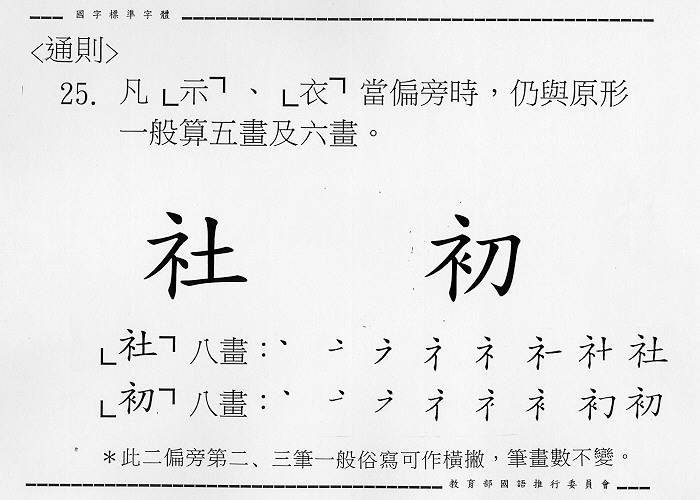 國字標準字體
<通則>
25. 凡└示┐、└衣┐當偏旁時，仍與原形
一般算五畫及六畫。
社 初
└社┐八畫：丶 社
└初┐八畫：丶 初
＊此二偏旁第二、三筆一般俗寫可作橫撇，筆畫數不變。
教育部國語推行委員會